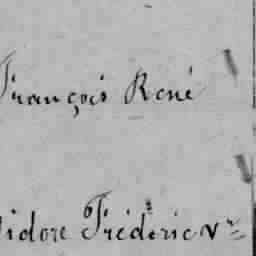 François René
idore Fréderic Vr